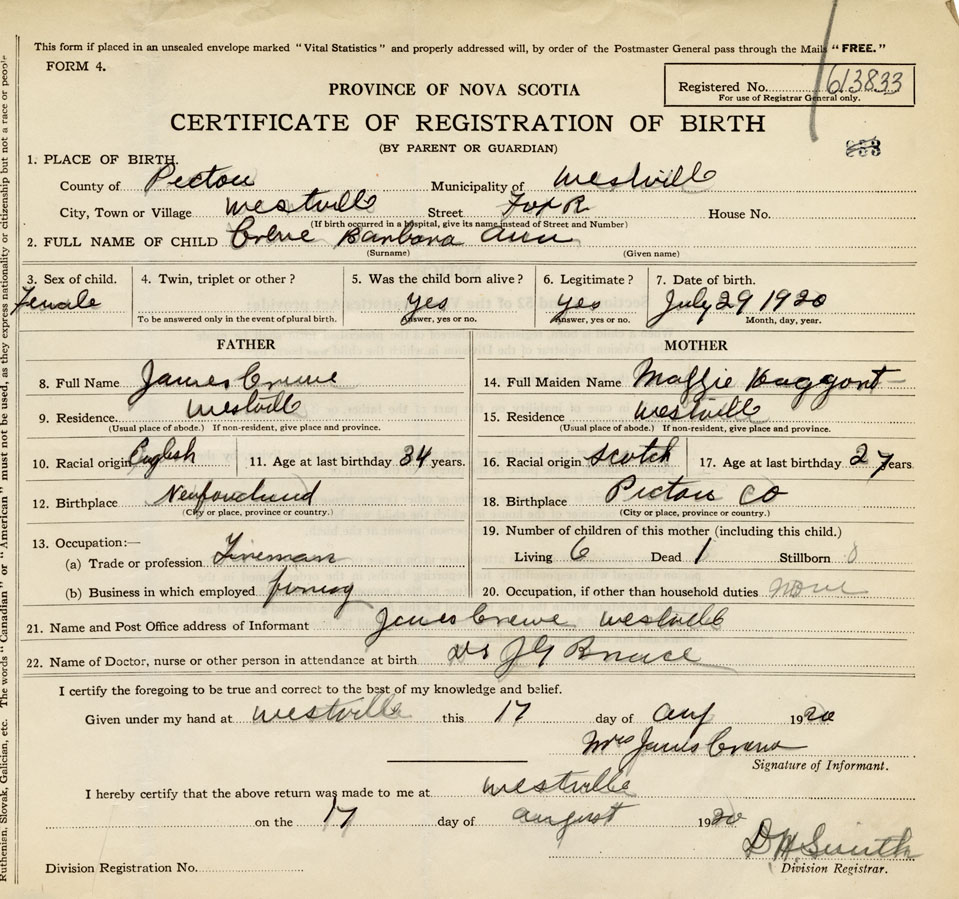 This form if placed in an unsealed envelope marked "Vital Statistics" and properly addressed will, by order of the Postmaster General pass through the Mails "FREE."
FORM 4.
Registered No. 613833
For use of Registrar General only.
PROVINCE OF NOVA SCOTIA
CERTIFICATE OF REGISTRATION OF BIRTH
(BY PARENT OR GUARDIAN)
1. PLACE OF BIRTH.
County of Pictou Municipality of Westville
City, Town or Village Westville Street Fox R House No.
(If birth occurred in a hospital, give its name instead of Street and Number)
2. FULL NAME OF CHILD Crewe Barbara Ann
(Surname) (Given name)
3. Sex of child. 4. Twin, triplet or other? 5. Was the child born alive? 6. Legitimate? 7. Date of birth.
Female yes yes July 29 1920
To be answered only in the event of plural birth. Answer, yes or no. Answer, yes or no. Month, day, year.
FATHER MOTHER
8. Full Name James Crewe 14. Full Maiden Name Maggie
9. Residence Westville 15. Residence Westville
(Usual place of abode.) If non-resident, give place and province. (Usual place of abode.) If non-resident, give place and province.
10. Racial origin English 11. Age at last birthday 34 years. 16. Racial origin Scotch 17. Age at last birthday 27 years.
12. Birthplace Newfoundland 18. Birthplace Pictou Co
(City or place, province or country.) (City or place, province or country.)
13. Occupation:— 19. Number of children of this mother (including this child.)
(a) Trade or profession Fireman Living 6 Dead 1 Stillborn 0
(b) Business in which employed 20. Occupation, if other than household duties None
21. Name and Post Office address of Informant James Crewe Westville
22. Name of Doctor, nurse or other person in attendance at birth Dr J G Bruce
I certify the foregoing to be true and correct to the best of my knowledge and belief.
Given under my hand at Westville this 17 day of Aug 1920
Mrs James Crewe
Signature of Informant.
I hereby certify that the above return was made to me at Westville
on the 17 day of August 1920
D H Smith
Division Registrar.
Division Registration No.
Ruthenien, Slovak, Galician, etc. The words "Canadian" or "American" must not be used, as they express nationality or citizenship but not a race or people